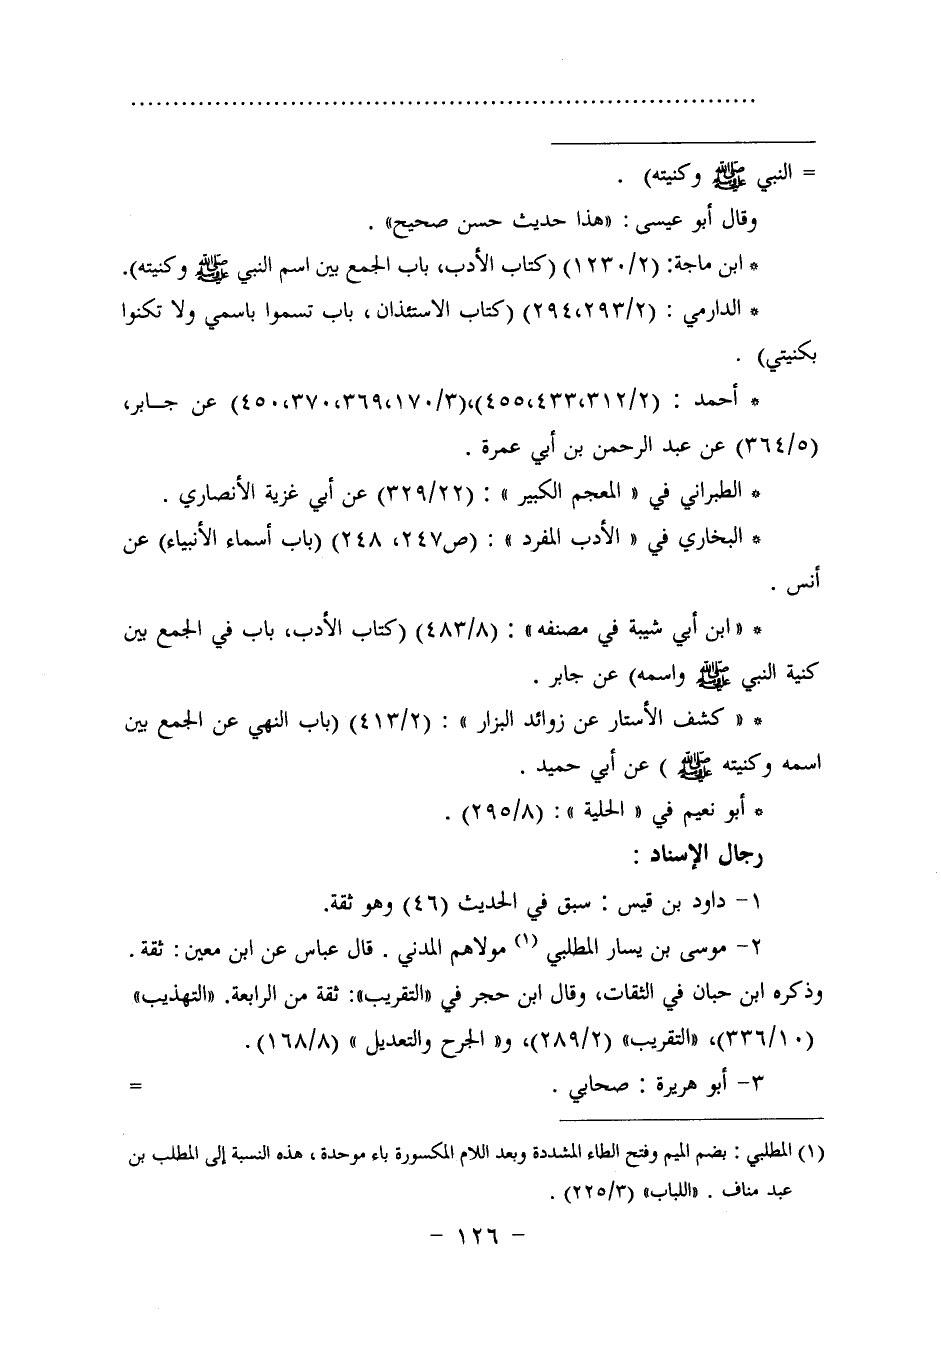 ..........................................................................
= النبي ﷺ وكنيته) .
وقال أبو عيسى : «هذا حديث حسن صحيح» .
* ابن ماجة: (٢/ ١٢٣٠) (كتاب الأدب، باب الجمع بين اسم النبي ﷺ وكنيته).
* الدارمي : (٢/ ٢٩٣،٢٩٤) (كتاب الاستئذان ، باب تسموا باسمي ولا تكنوا
بكنيتي) .
* أحمد : (٢/ ٣١٢،٤٣٣،٤٥٥)،(٣/ ١٧٠،٣٦٩،٣٧٠،٤٥٠) عن جـابر،
(٥/ ٣٦٤) عن عبد الرحمن بن أبي عمرة .
* الطبراني في « المعجم الكبير » : (٢٢/ ٣٢٩) عن أبي غزية الأنصاري .
* البخاري في « الأدب المفرد » : (ص٢٤٧، ٢٤٨) (باب أسماء الأنبياء) عن
أنس .
* « ابن أبي شيبة في مصنفه» : (٨/ ٤٨٣) (كتاب الأدب، باب في الجمع بين
كنية النبي ﷺ واسمه) عن جابر .
* « كشف الأستار عن زوائد البزار » : (٢/ ٤١٣) (باب النهي عن الجمع بين
اسمه وكنيته ﷺ ) عن أبي حميد .
* أبو نعيم في « الحلية » : (٨/ ٢٩٥) .
رجال الإسناد :
١- داود بن قيس : سبق في الحديث (٤٦) وهو ثقة.
٢- موسى بن يسار المطلبي (١) مولاهم المدني . قال عباس عن ابن معين : ثقة .
وذكره ابن حبان في الثقات، وقال ابن حجر في «التقريب»: ثقة من الرابعة. «التهذيب»
(١٠/ ٣٣٦)، «التقريب» (٢/ ٢٨٩)، و« الجرح والتعديل » (٨/ ١٦٨).
٣- أبو هريرة : صحابي . =
(١) المطلبي : بضم الميم وفتح الطاء المشددة وبعد اللام المكسورة باء موحدة ، هذه النسبة إلى المطلب بن
عبد مناف . «اللباب» (٣/ ٢٢٥) .
- ١٢٦ -